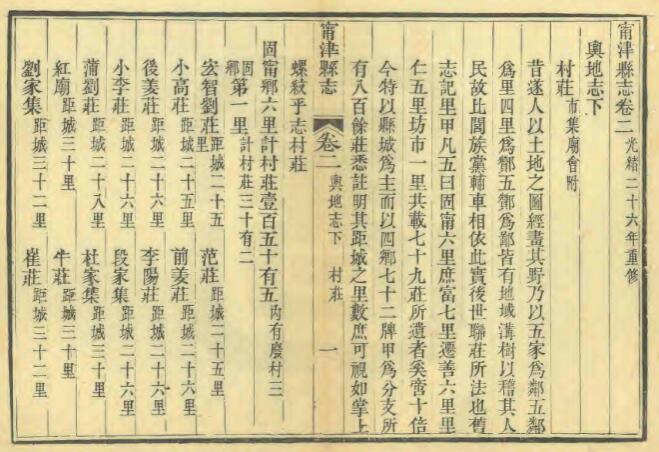 甯津縣志卷二 光緒二十六年重修
輿地志下
村莊 市集廟會附
昔遂人以土地之圖經畫其野乃以五家為鄰五鄰
為里四里為酇五酇為鄙皆有地域溝樹以稽其人
民故比閭族黨輔車相依此實後世聯莊所法也舊
志記里甲凡五曰固甯六里庶富七里遷善六里里
仁五里坊市一里共載七十九莊所遺者奚啻十倍
今特以縣城為主而以四鄉七十二牌甲為分支所
有八百餘莊悉註明其距城之里數庶可視如掌上
甯津縣志 卷二 輿地志下 村莊 一
螺紋乎志村莊
固甯鄉六里計村莊壹百五十有五 內有廢村三
固鄉第一里 計村莊三十有二
宏智劉莊 距城二十五里 范莊 距城二十五里
小高莊 距城二十五里 前姜莊 距城二十六里
後姜莊 距城二十六里 李陽莊 距城二十六里
小李莊 距城二十六里 段家集 距城二十六里
蒲劉莊 距城二十八里 杜家集 距城三十里
紅廟 距城三十里 牛莊 距城三十里
劉家集 距城三十二里 崔莊 距城三十二里